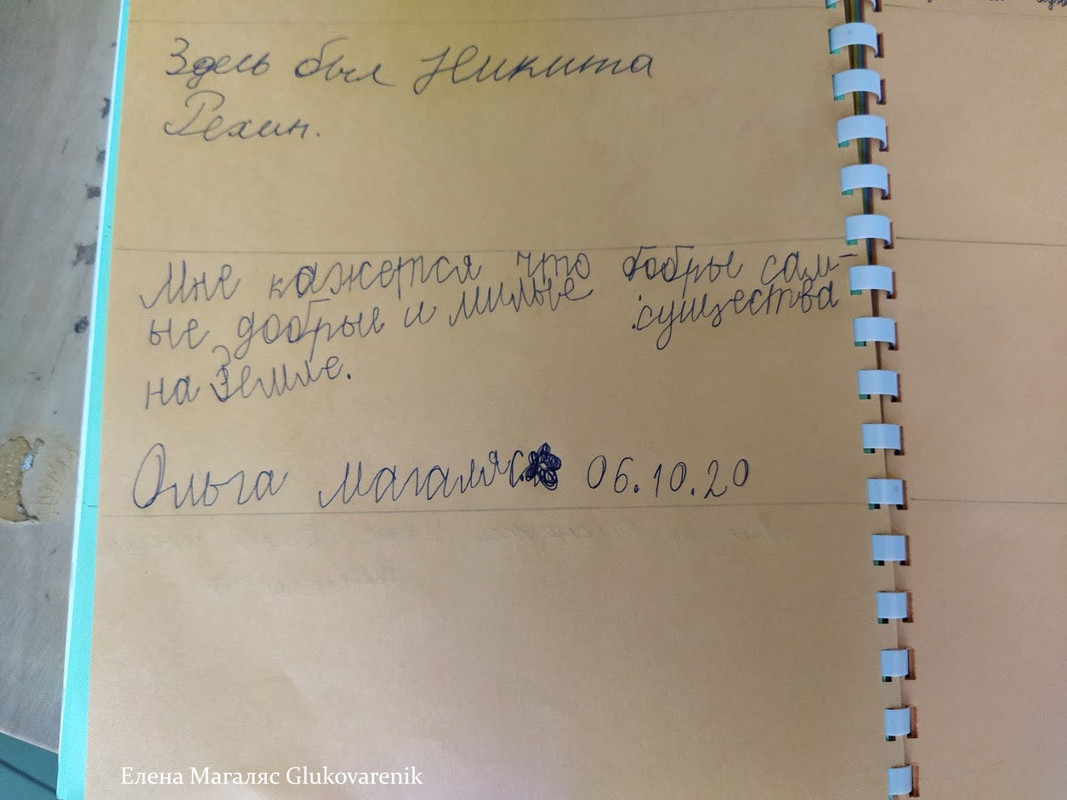 Здесь был Никита
Рехин.
Мне кажется что бобры сам-
ые добрые и милые существа
на Земле.
Ольга Магаляс 06.10.20
Елена Магаляс Glukovarenik